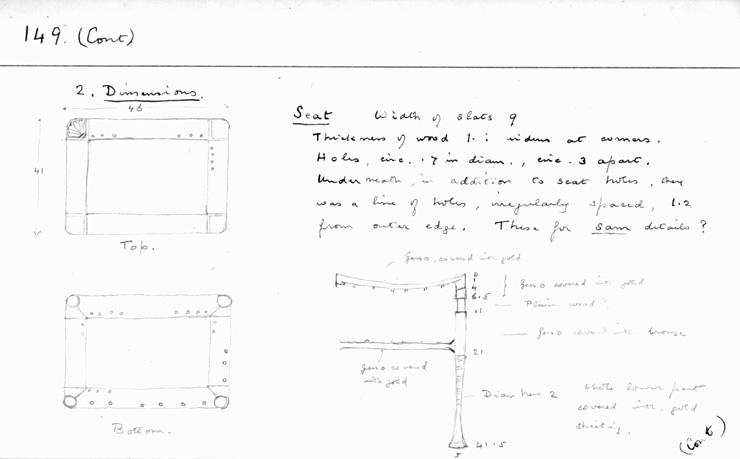 149. (Cont)
2. Dimensions.
46
41
Top.
Bottom.
Seat Width of slats 9
Thickness of wood 1. : widens at corners.
Holes, circ. .7 in diam., circ. 3 apart.
Underneath, in addition to seat holes, there
was a line of holes, irregularly spaced, 1.2
from outer edge. These for sam details?
Gesso, covered with gold
0
1
4
6.5
11
21
41.5
5
Gesso covered with gold
Plain wood?
Gesso covered with bronze
gesso covered
with gold
Diam here 2
whole lower part
covered with gold
sheeting.
(Cont)